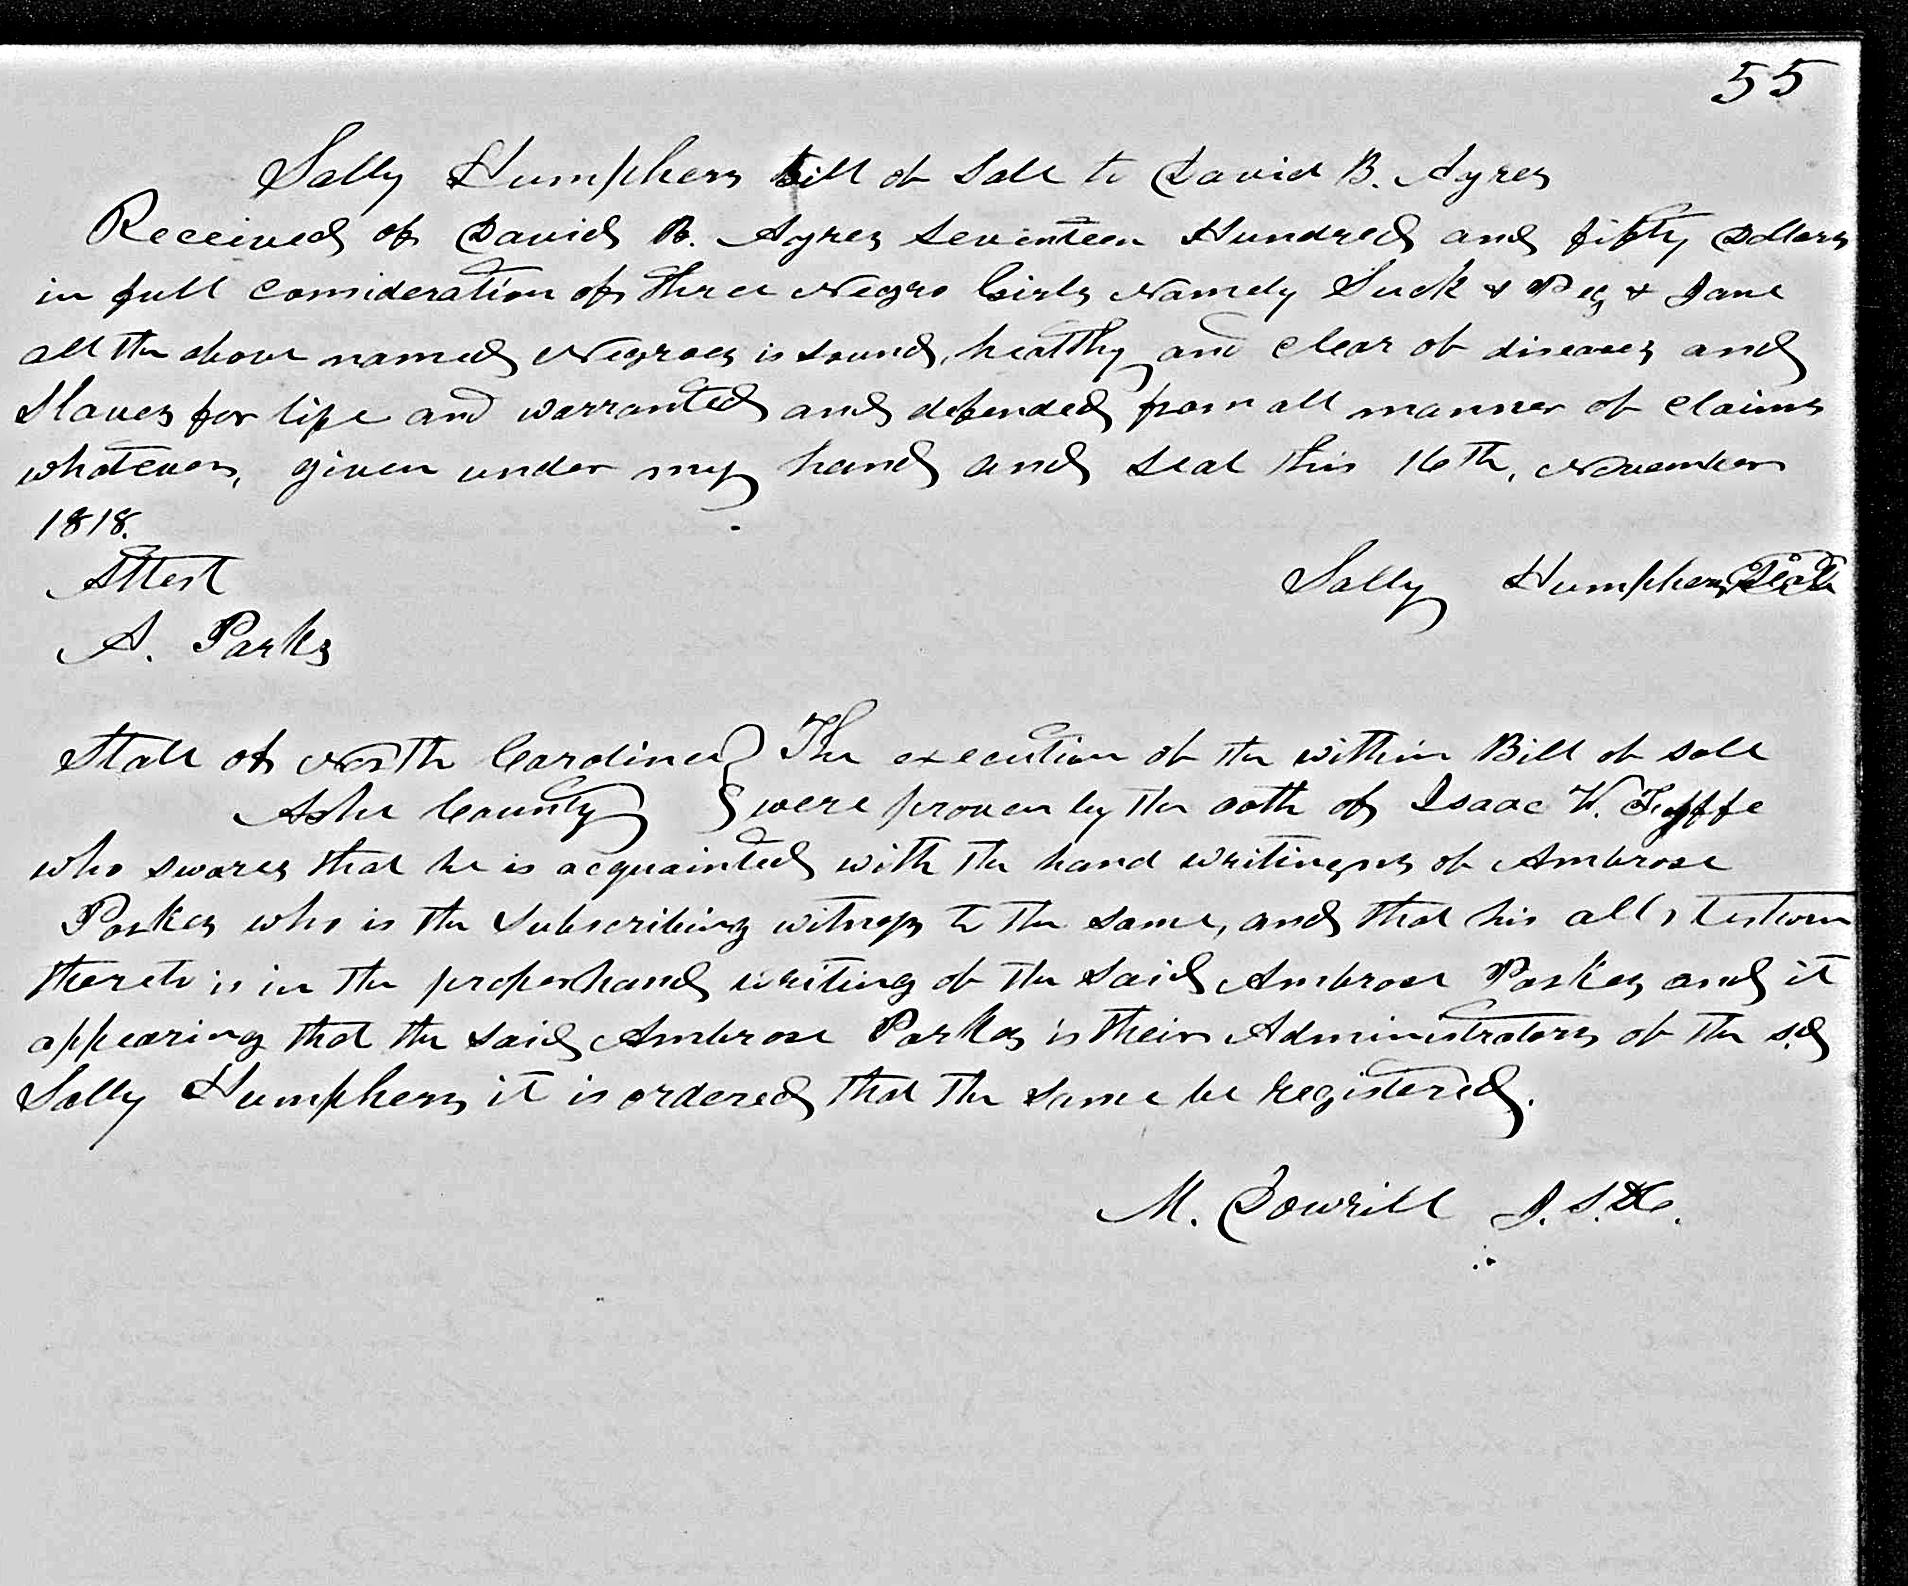 55
Sally Humphers bill of Sale to David B. Ayres
Received of David B. Ayres seventeen Hundred and fifty Dollars
in full consideration of three Negro Girls Namely Suck & Peg & Jane
all the above named Negroes is sound, healthy and clear of diseases and
Slaves for life and warranted and defended from all manner of claims
whatever, given under my hand and seal this 16th, November
1818.
Attest
Sally Humphers Seal
A. Parks
State of North Carolina The execution of the within Bill of sale
Ashe County were proven by the oath of Isaac W.
who swares that he is acquainted with the hand writing of Ambrose
Parkes who is the Subscribing witness to the same, and that his
thereto is in the proper hand writing of the said Ambrose Parkes and it
appearing that the said Ambrose Parkes is their Administrators of the sd
Sally Humphers it is ordered that the same be registered.
M.